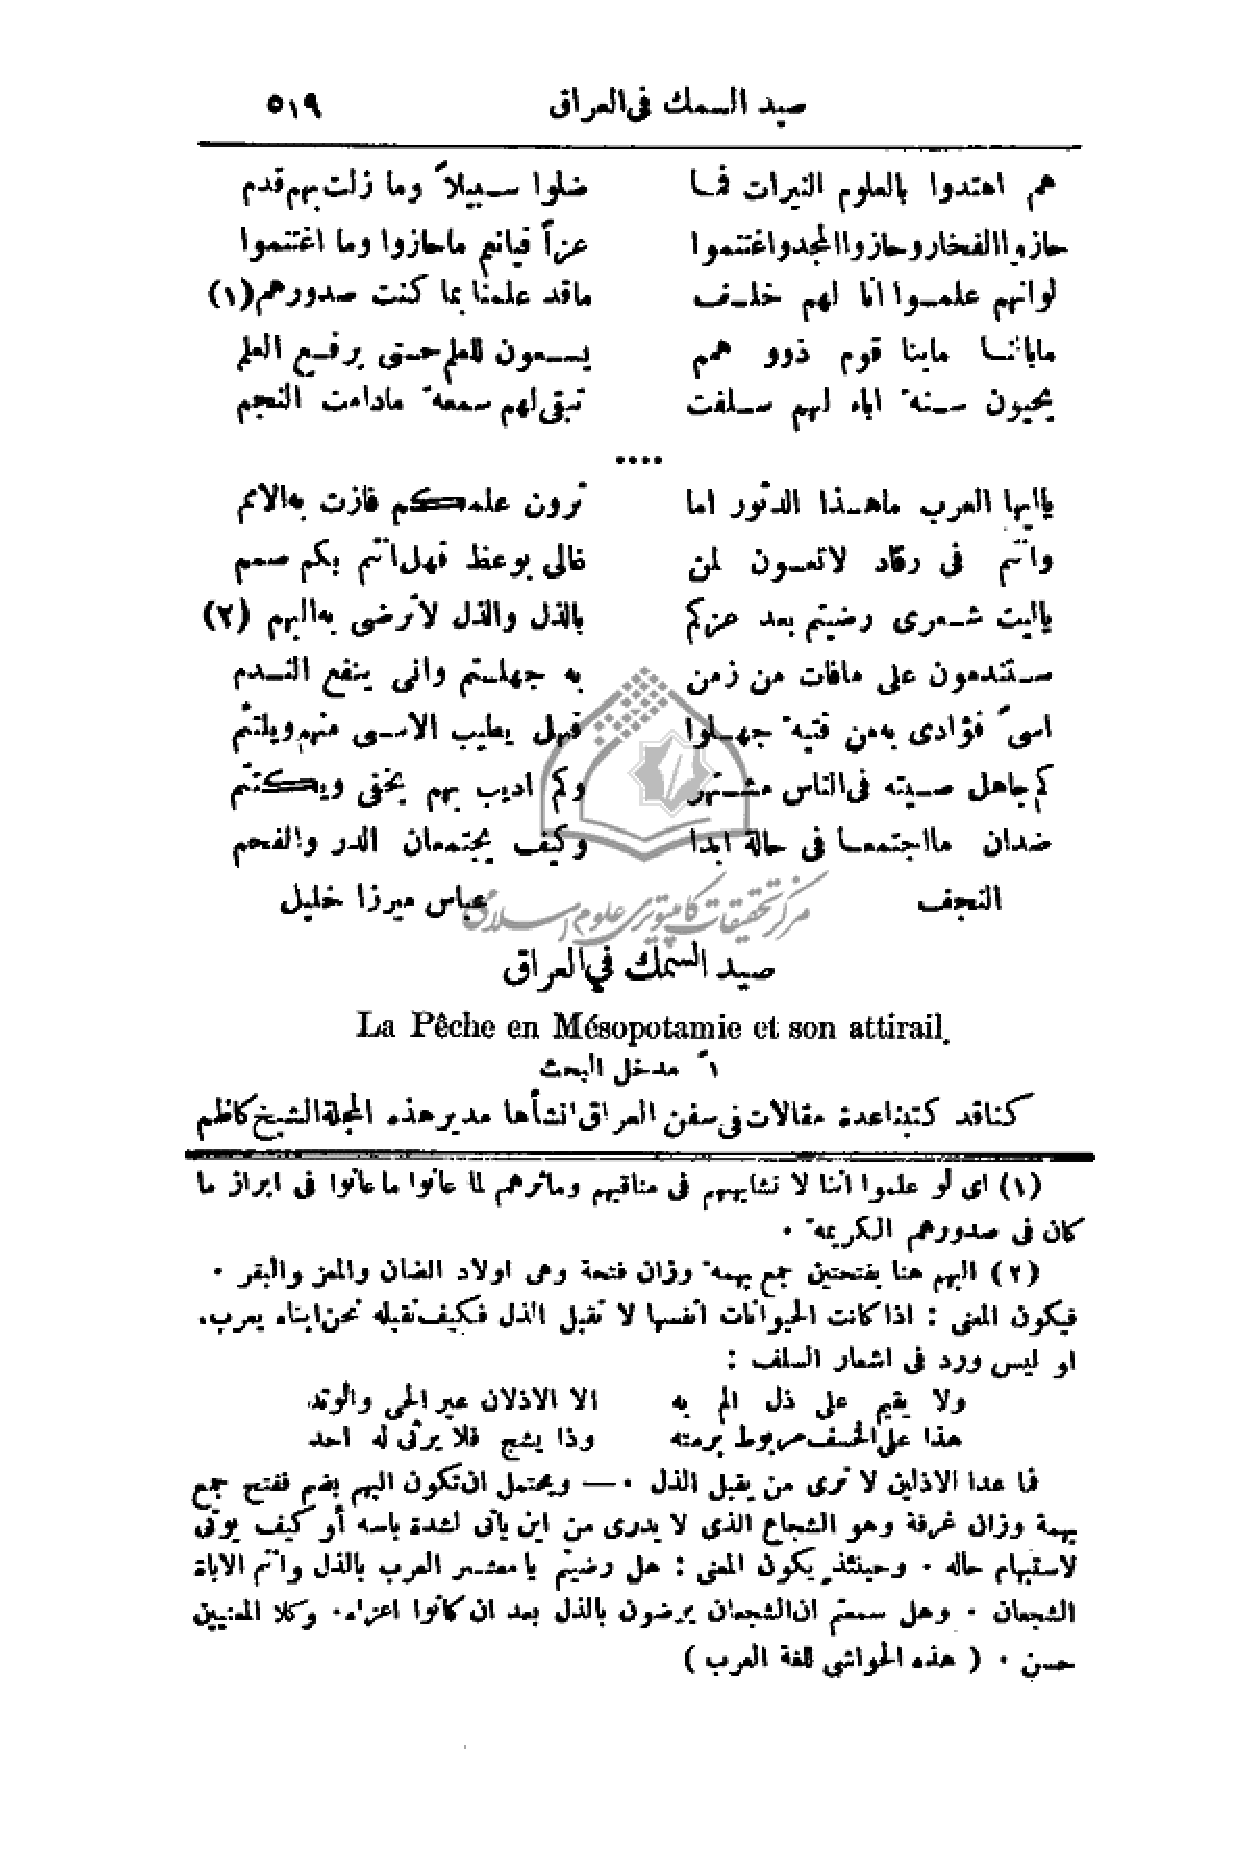 صيد السمك في العراق ٥١٩
هم اهتدوا بالعلوم النيرات فما ضلوا سبيلاً وما زلت بهم قدم
حازوا الفخار وحازوا المجد واغتنموا عزاً فيانعم ماحازوا وما اغتنموا
لوانهم علموا انا لهم خلف ماقد علمنا بما كنت صدورهم (١)
مابالنا مابنا قوم ذوو همم يسعون للعلم حتى يرفع العلم
يحيون سنة اباء لهم سلفت تبقى لهم سمعة مادامت النجم
....
ياايها العرب ماهذا الدثور اما ترون علمكم فازت به الامم
وانتم في رقاد لاتعون لمن فالى بوعظ فهل انتم بكم صمم
ياليت شعرى رضيتم بعد عزكم بالذل والذل لاترضى به البهم (٢)
ستندمون على مافات من زمن به جهلتم وانى ينفع الندم
اسىً فؤادى به من فتية جهلوا فهل يطيب الاسى منهم ويلتئم
كم جاهل صيته في الناس مشتهر وكم اديب بهم يخفى ويكتتم
ضدان مااجتمعا في حالة ابدا وكيف يجتمعان الدر والفحم
النجف عباس ميرزا خليل
مركز تحقيقات كامپيوتري علوم اسلامي
صيد السمك في العراق
La Pêche en Mésopotamie et son attirail.
١ً مدخل البحث
كنا قد كتبنا عدة مقالات في سفن العراق انشأها مدير هذه المجلة الشيخ كاظم
(١) اى لو علموا اننا لا نشابههم فى مناقبهم ومآثرهم لما عانوا ما عانوا فى ابراز ما
كان فى صدورهم الكريمة ٠
(٢) البهم هنا بفتحتين جمع بهمة وزان فتحة وهى اولاد الضان والمعز والبقر ٠
فيكون المعنى : اذا كانت الحيوانات انفسها لا تقبل الذل فكيف نقبله نحن ابناء يعرب.
او ليس ورد فى اشعار السلف :
ولا يقيم على ذل الم به الا الاذلان عير الحى والوتد
هذا على الخسف مربوط برمته وذا يشج فلا يرثى له احد
فما عدا الاذلين لا ترى من يقبل الذل ٠ — ويحتمل ان تكون البهم بضم ففتح جمع
بهمة وزان غرفة وهو الشجاع الذى لا يدرى من اين ياتى لشدة باسه أو كيف يوتى
لاستبهام حاله ٠ وحينئذ يكون المعنى : هل رضيتم يا معشر العرب بالذل وانتم الاباة
الشجعان ٠ وهل سمعتم ان الشجعان يرضون بالذل بعد ان كانوا اعزاء٠ وكلا المعنيين
حسن ٠ ( هذه الحواشى للغة العرب )